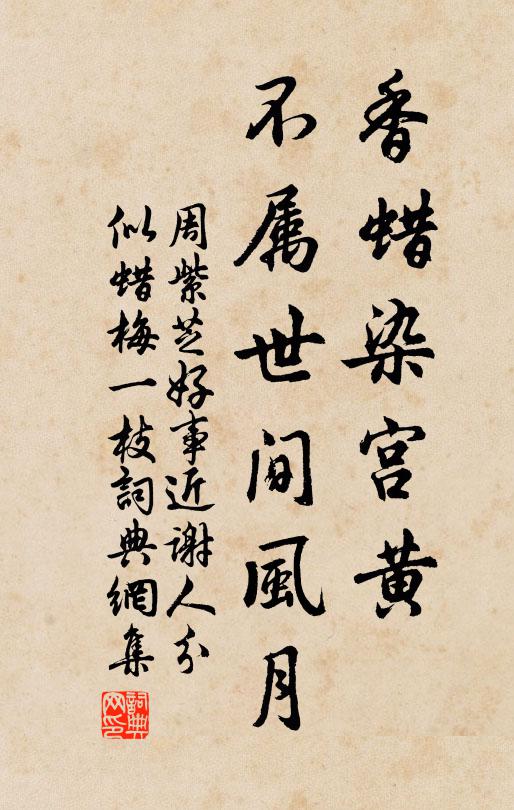 香蜡染宫黄
不属世间風月
周紫芝好事近谢人分
似蜡梅一枝詞典網集
詞典網印